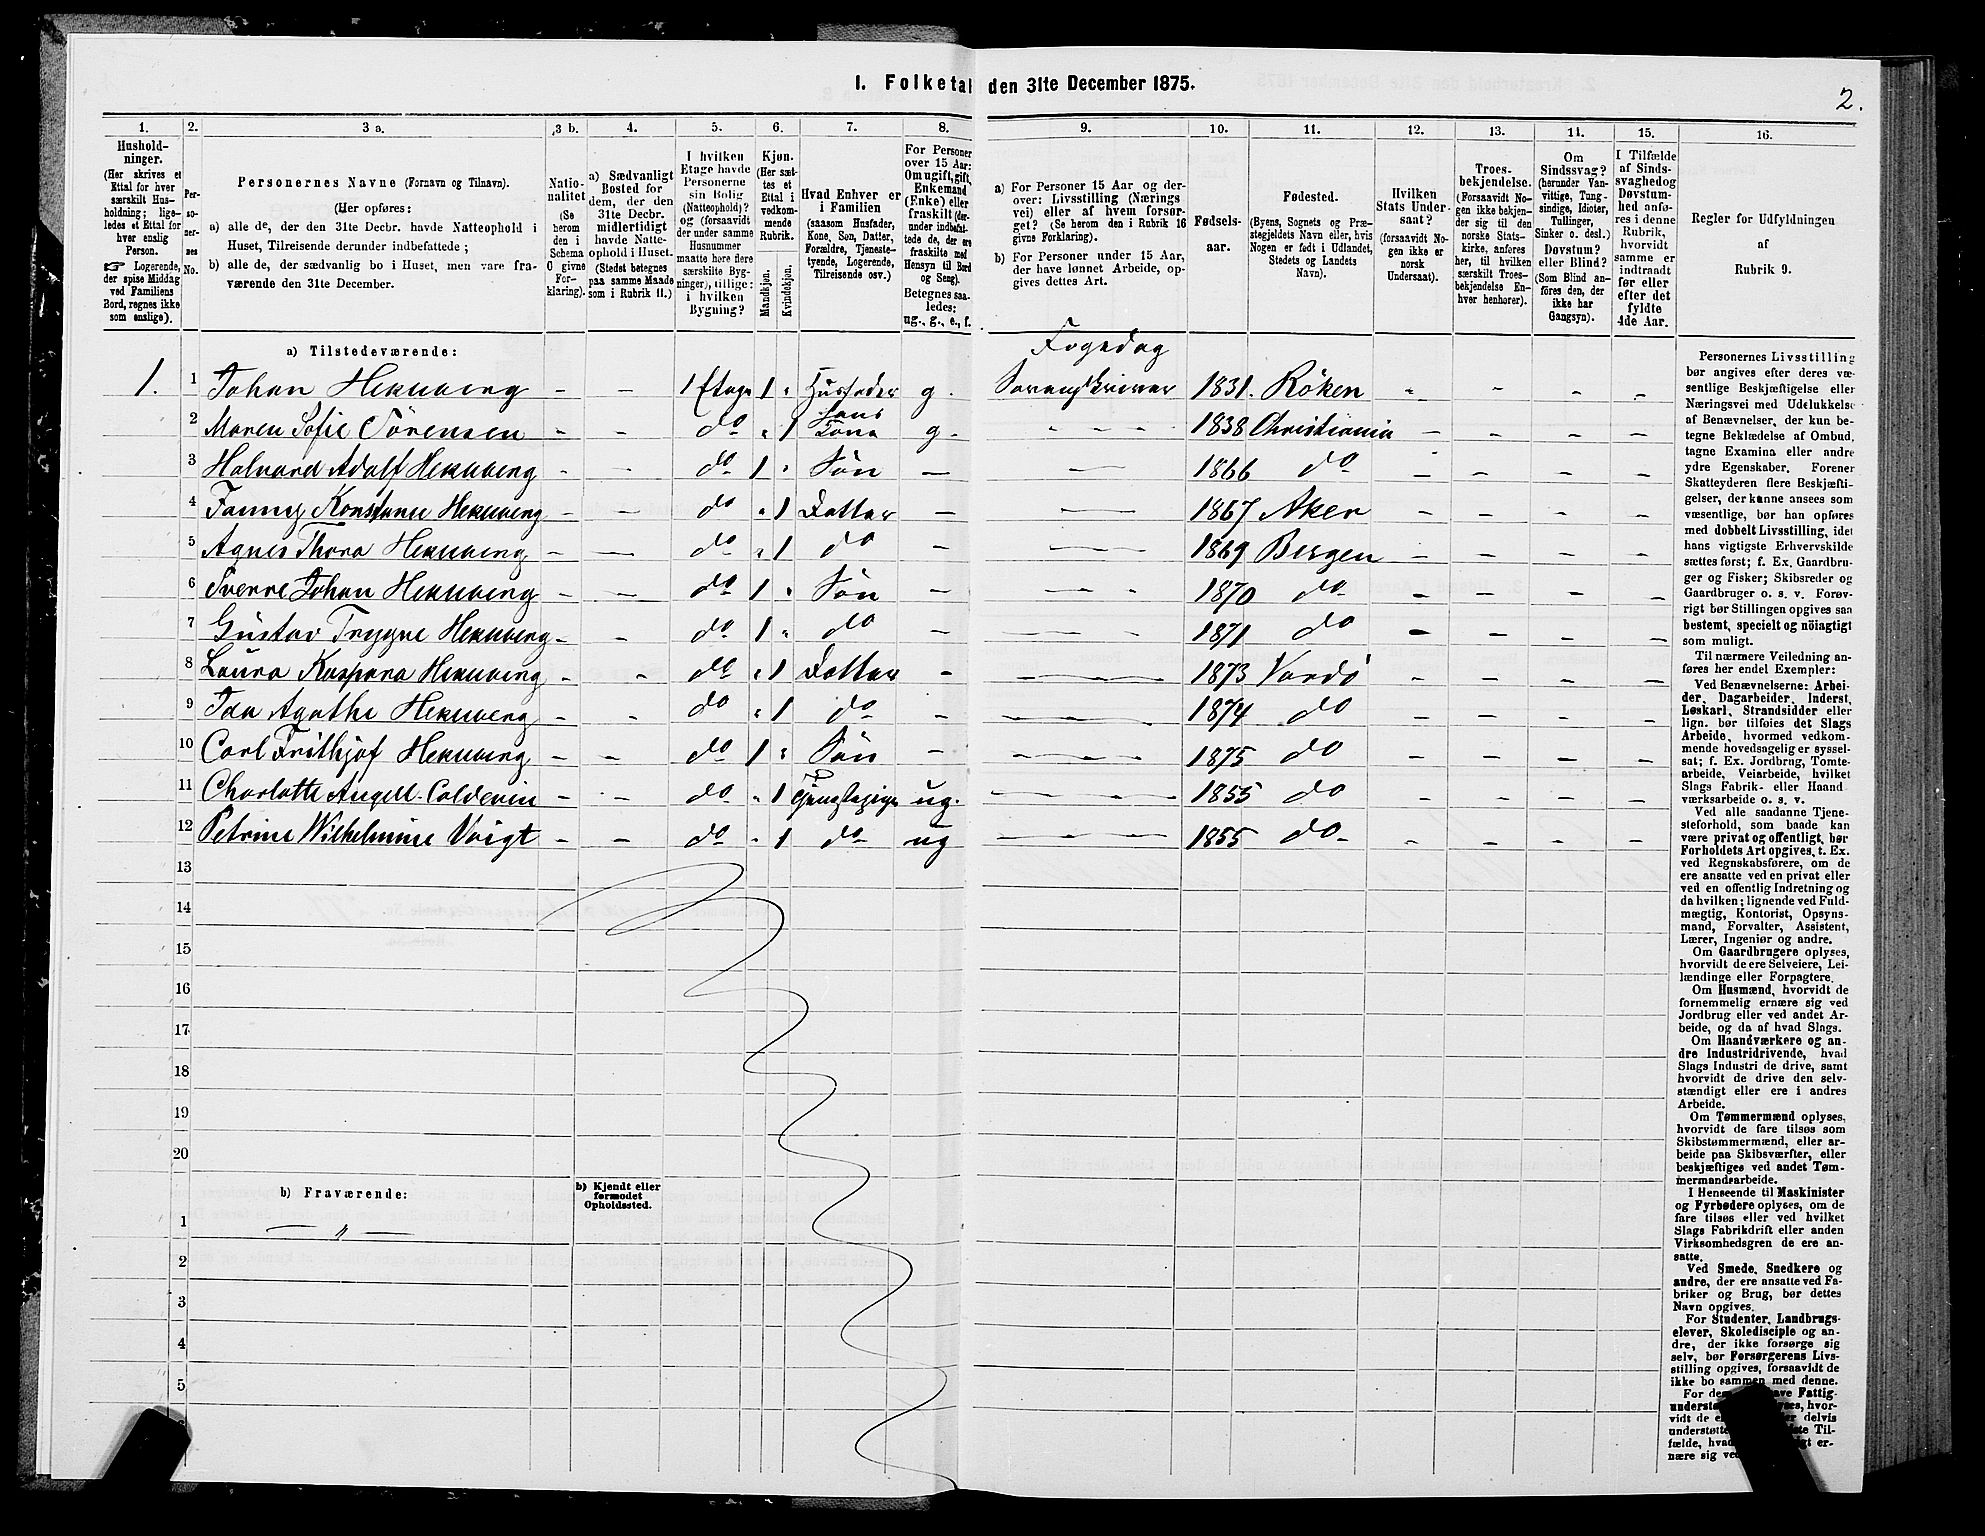 I. Folketal den 31te December 1875.
2.
1. 2. 3 a. 3 b. 4. 5. 6. 7. 8. 9. 10. 11. 12. 13. 14. 15. 16.
Hushold-
ninger.
(Her skrives et
Ettal for hver
særskilt Hus-
holdning; lige-
ledes et Ettal for
hver enslig
Person.
☞ Logerende,
der spise Middag
ved Familiens
Bord, regnes ikke
som enslige).
Per-
so-
ner-
nes
No.
Personernes Navne (Fornavn og Tilnavn).
(Her opføres:
a) alle de, der den 31te Decbr. havde Natteophold i
Huset, Tilreisende derunder indbefattede;
b) alle de, der sædvanlig bo i Huset, men vare fra-
værende den 31te December.
Natio-
nalitet
(Se
herom
den i
Schema
6 givne
For-
klaring).
a) Sædvanligt
Bosted for
dem, der den
31te Decbr.
midlertidigt
havde Natte-
ophold i Huset.
(Stedst betegnes
paa samme Maade
som i Rubrik 11.)
I hvilken
Etage havde
Personerne
sin Bolig
(Natteophold)?
og (forsaavidt
der under samme
Husnummer
maatte høre flere
særskilte Byg-
ninger), tillige:
i hvilken
Bygning?
Kjøn.
(Her sæt-
tes et
Ettal i
vedkom-
mende
Rubrik.
Mandkjøn.
Kvindekjøn.
Hvad Enhver er
i Familien
(saasom Husfader,
Kone, Søn, Datter,
Forældre, Tjeneste-
tyende, Logerende,
Tilreisende osv.)
For Personer
over 15 Aar:
Om ugift, gift,
Enkemand
(Enke) eller
fraskilt (der-
under indbefat-
tede de, der ere
fraskilte med
Hensyn til Bord
og Seng).
Betegnes saa-
ledes:
ug., g., e., f.
a) For Personer 15 Aar og der-
over: Livsstilling (Nærings
vei) eller af hvem forsør-
get. (Se herom den i Rubrik 16
givne Forklaring).
b) For Personer under 15 Aar,
der have lønnet Arbeide, op-
gives dettes Art.
Fødsels-
aar.
Fødested.
(Byens, Sognets og Præ-
stegjeldets Navn eller, hvis
Nogen er født i Udlandet,
Stedets og Landets
Navn).
Hvilken
Stats Under-
saat?
(forsaavidt No-
gen ikke er
norsk
Undersaat).
Troes-
bekjendelse.
(Forsaavidt No-
gen ikke bekjen-
der sig til den
norske Stats-
kirke, anføres
her, til hvilken
særskilt Troes-
bekjendelse En-
hver henhører).
Om
Sindssvag?
(herunder Van-
vittige, Tung-
sindige, Idioter,
Tullinger,
Sinker o. desl.)
Døvstum?
eller Blind?
(Som Blind an-
føres den, der
ikke har
Gangsyn).
I Tilfælde
af Sinds-
svaghed og
Døvstum-
hed anfø-
res i denne
Rubrik,
hvorvidt
samme er
indtraadt
før eller
efter det
fyldte
4de Aar.
Regler for Udfyldningen
af
Rubrik 9.
a) Tilstedeværende:
Foged og
1. 1 Johan Heknberg - - 1 Etage 1 " Husfader g. Sorenskriver 1831. Röken - - - -
Hans
2 Maren Sofie Sörensen - - do " 1 Kone g. 1838 Christiania - - - -
3 Halvard Adolf - - do 1 " Sön - 1866 do - - - -
4 Fanny - - do " 1 Datter - 1867 Aker - - - -
5 Agnes Thora - - do " 1 do - 1869 Bergen - - - -
6 Sverre Johan - - do 1 " Sön - 1870 do - - - -
7 Gustav Trygve - - do 1 " do - 1871 do - - - -
8 Laura - - do " 1 Datter - 1873 Vardö - - - -
9 Ida Agathe - - do " 1 do - 1874 do - - - -
10 Carl Frithjof - - do 1 " Sön - 1875 do - - - -
11 Charlotte Angell Colderin - - do " 1 Tjenestepige ug. 1855 do - - - -
12 Petrine Wilhelmine Voigt - - do " 1 do ug 1855 do - - - -
13
14
15
16
17
18
19
20
b) Fraværende:
b) Kjendt eller
formodet
Opholdssted.
1 — " —
2
3
4
5
Personernes Livsstilling
bør angives efter deres væ-
sentlige Beskjæftigelse eller
Næringsvei med Udelukkelse
af Benævnelser, der kun be-
tegne Beklædelse af Ombud,
tagne Examina eller andre
ydre Egenskaber. Forener
Skatteyderen flere Beskjæfti-
gelser, der kunne ansees som
væsentlige, bør han opføres
med dobbelt Livsstilling, idet
hans vigtigste Erhvervskilde
sættes først; f. Ex. Gaardbru-
ger og Fisker; Skibsreder og
Gaardbruger o. s. v. Forøv-
rigt bør Stillingen opgives saa
bestemt, specielt og nöiagtigt
som muligt.
Til nærmere Veiledning an-
føres her endel Exempler:
Ved Benævnelserne: Arbei-
der, Dagarbeider, Inderst,
Løskarl, Strandsidder eller
lign. bør tilføies det Slags
Arbeide, hvormed vedkom-
mende hovedsagelig er syssel-
sat; f. Ex. Jordbrug, Tomte-
arbeide, Veiarbeide, hvilket
Slags Fabrik- eller Haand
værksarbeide o. s. v.
Ved alle saadanne Tjene-
steforhold, som baade kan
være privat og offentligt, bør
Forholdets Art opgives, t. Ex.
ved Regnskabsførere, om de
ere ansatte ved en privat eller
ved en offentlig Indretning og
da hvilken; lignende ved Fuld-
mægtig, Kontorist, Opsyns-
mand, Forvalter, Assistent,
Lærer, Ingeniør og andre.
Om Gaardbrugere oplyses,
hvorvidt de ere Selveiere, Lei-
lændinge eller Forpagtere.
Om Husmænd, hvorvidt de
fornemmelig ernære sig ved
Jordbrug eller ved andet Ar-
beide, og da af hvad Slags.
Om Haandværkere og an-
dre Industridrivende, hvad
Slags Industri de drive, samt
hvorvidt de drive den selv-
stændigt eller ere i andres
Arbeide.
Om Tømmermænd oplyses,
hvorvidt de fare tilsøs som
Skibstømmermænd, eller ar-
beide paa Skibsværfter, eller
beskjæftiges ved andet Tøm-
mermandsarbeide.
I Henseende til Maskinister
og Fyrbødere oplyses, om de
fare tilsøs eller ved hvilket
Slags Fabrikdrift eller anden
Virksomhedsgren de ere an-
satte.
Ved Smede, Snedkere og
andre, der ere ansatte ved Fa-
briker og Brug, bør dettes
Navn opgives.
For Studenter, Landbrugs-
elever, Skoledisciple og an-
dre, der ikke forsørge sig
selv, bør Forsørgerens Livs-
stilling opgives, forsaavidt de
ikke bo sammen med denne.
For Fattig-
hvor-
vidt de delvis
Til-
fælde, er-
nære sig